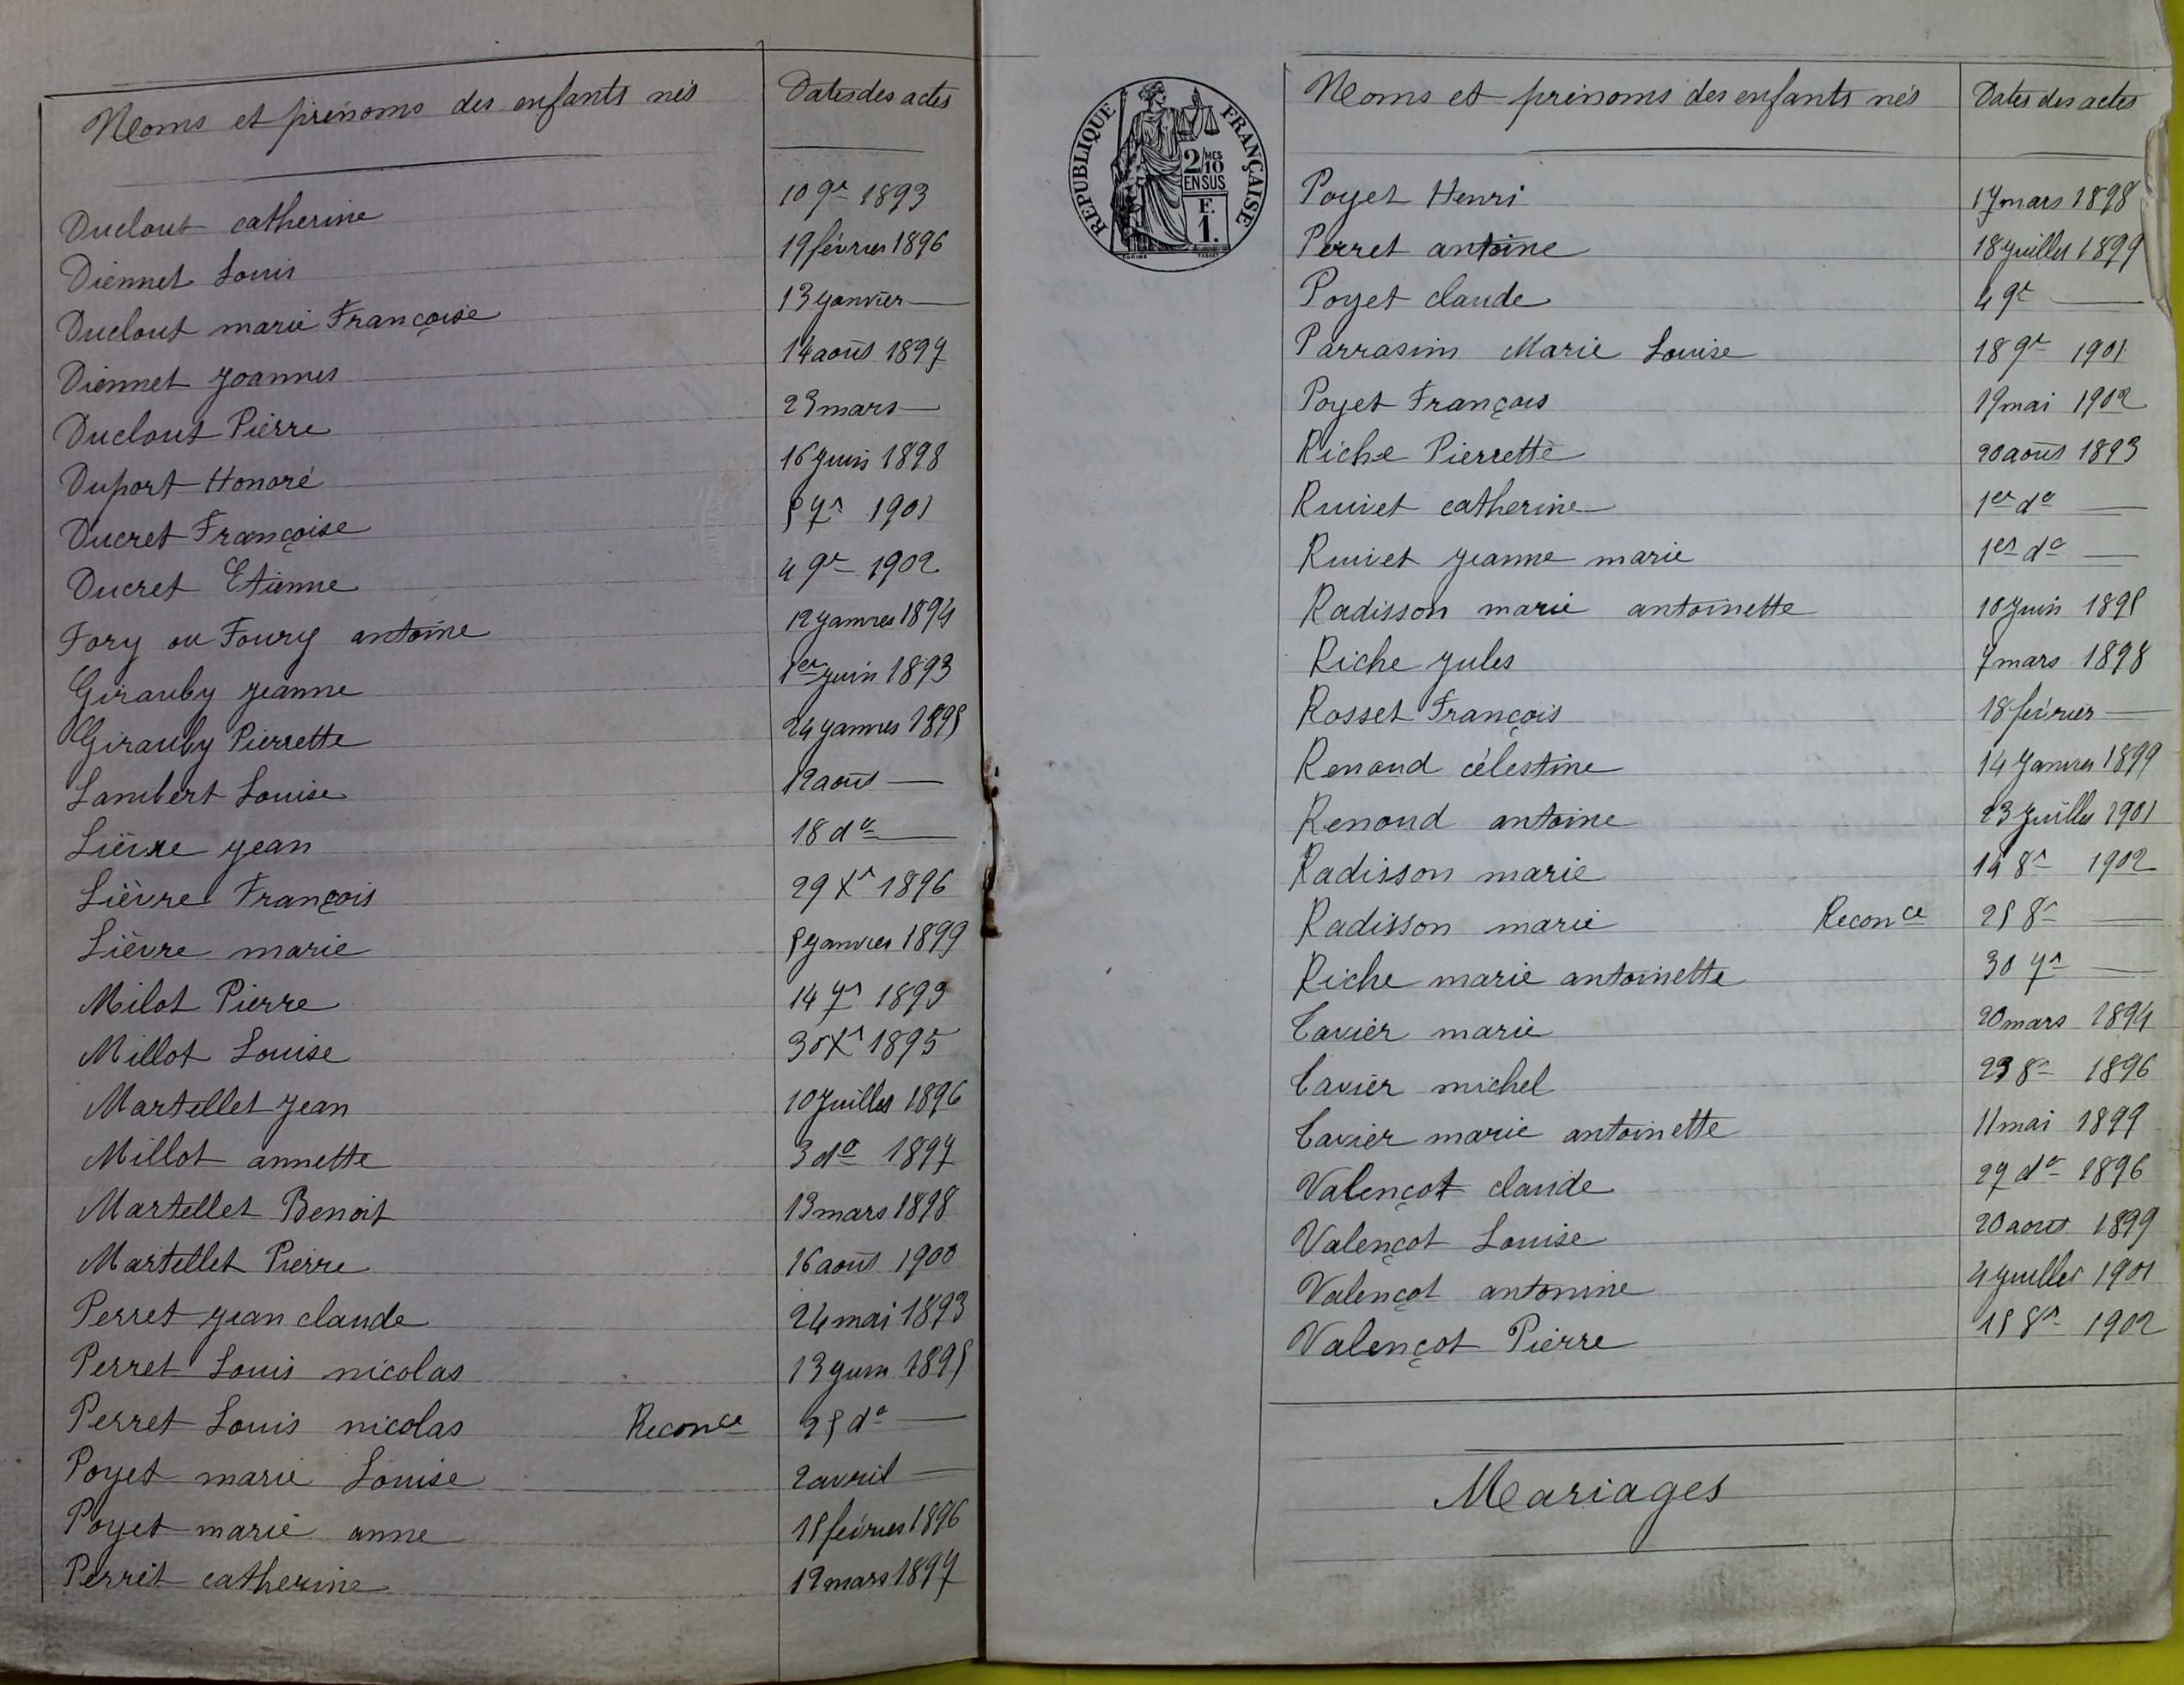 Noms et prénoms des enfants nés Dates des actes
Duclout catherine 10 9r 1893
Diennet Louis 19 février 1896
Duclout marie Françoise 13 janvier —
Diennet joannes 14 août 1897
Duclout Pierre 23 mars —
Duport Honoré 16 juin 1898
Ducret Françoise 5 7r 1901
Ducret Etienne 4 9r 1902
Fory ou Foury antoine 12 janvier 1894
Girauby jeanne 1er juin 1893
Girauby Pierrette 24 janvier 1895
Lambert Louise 12 août —
Lièvre jean 18 do —
Lièvre François 29 Xr 1896
Lièvre marie 5 janvier 1899
Milot Pierre 14 7r 1893
Millot Louise 30 Xr 1895
Martellet jean 10 juillet 1896
Millot annette 3 do 1897
Martellet Benoit 13 mars 1898
Martellet Pierre 16 août 1900
Perret jean claude 24 mai 1893
Perret Louis nicolas 13 juin 1895
Perret Louis nicolas Reconce 25 do —
Poyet marie Louise 2 avril —
Poyet marie anne 15 février 1896
Perret catherine 12 mars 1897
REPUBLIQUE FRANÇAISE
2/10 MES
EN SUS
F.
1.
Noms et prénoms des enfants nés Dates des actes
Poyet Henri 17 mars 1898
Perret antoine 18 juillet 1899
Poyet claude 4 9r —
Parrasim Marie Louise 18 9r 1901
Poyet François 19 mai 1902
Riche Pierrette 20 août 1893
Ruivet catherine 1er do —
Ruivet jeanne marie 1er do —
Radisson marie antoinette 10 juin 1895
Riche jules 7 mars 1898
Rosset François 18 février —
Renoud célestine 14 janvier 1899
Renoud antoine 23 juillet 1901
Radisson marie 14 8r 1902
Radisson marie Reconce 25 8r —
Riche marie antoinette 30 7r —
Tavier marie 20 mars 1894
Tavier michel 23 8r 1896
Tavier marie antoinette 11 mai 1899
Valençot claude 27 do 1896
Valençot Louise 20 août 1899
Valençot antonine 4 juillet 1901
Valençot Pierre 15 8r 1902
Mariages